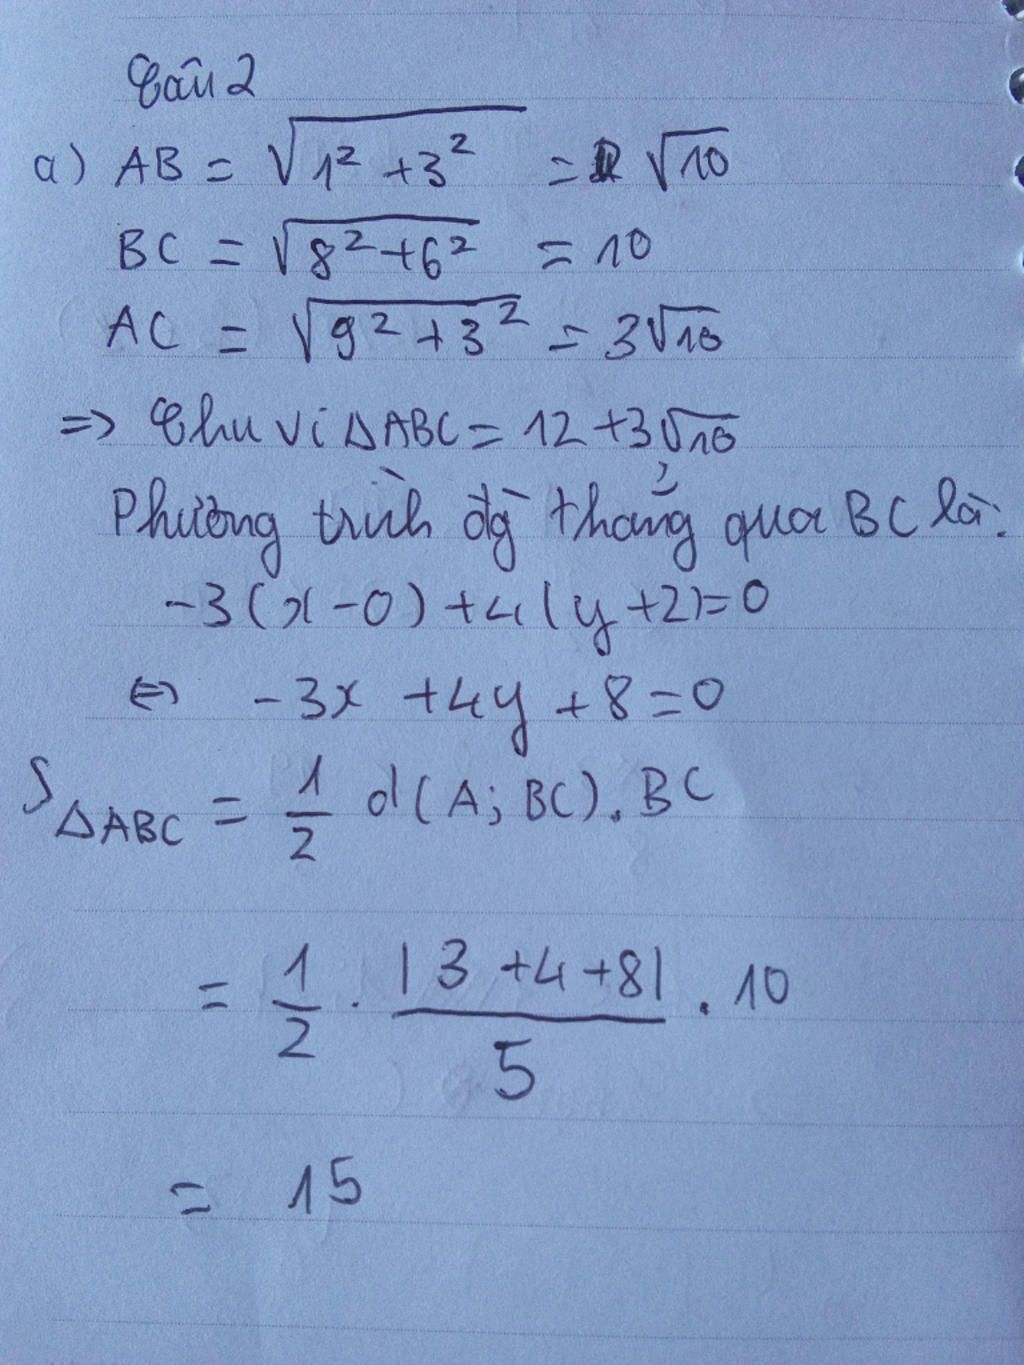 Câu 2
a) AB = √(1² + 3²) = √10
BC = √(8² + 6²) = 10
AC = √(9² + 3²) = 3√10
=> Chu vi ΔABC = 12 + 3√10
Phương trình đg thẳng qua BC là:
-3(x - 0) + 4(y + 2) = 0
⇔ -3x + 4y + 8 = 0
S ΔABC = 1/2 d(A; BC). BC
= 1/2 . |3 + 4 + 8| / 5 . 10
= 15